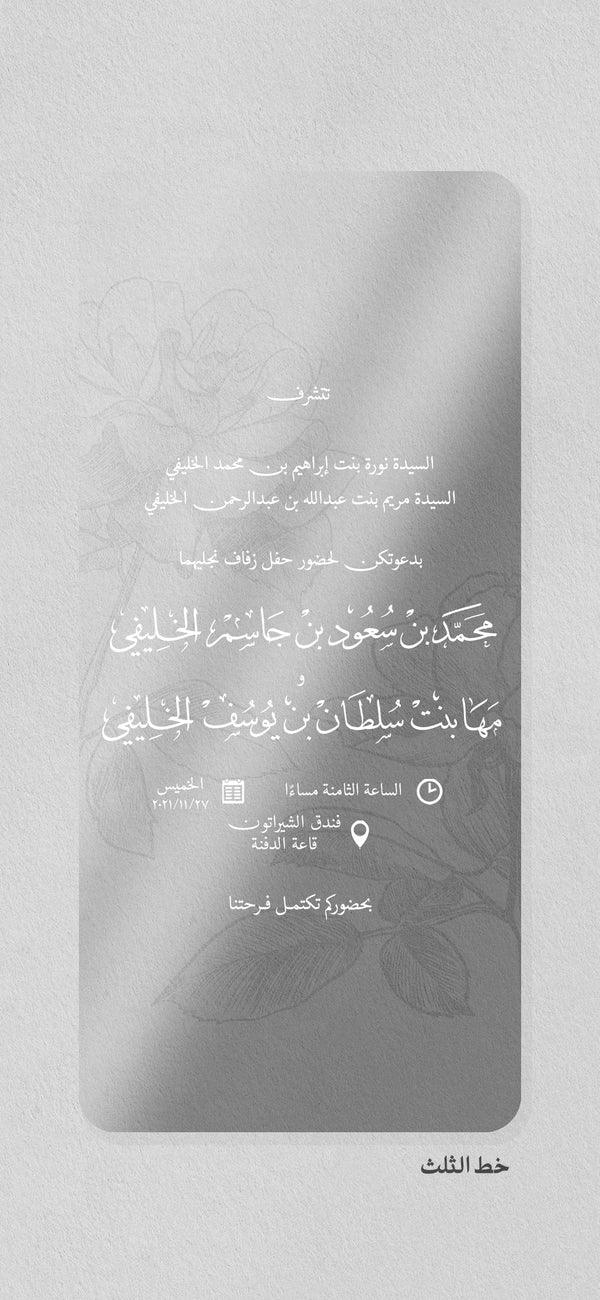 تتشرف
السيدة نورة بنت إبراهيم بن محمد الخليفي
السيدة مريم بنت عبدالله بن عبدالرحمن الخليفي
بدعوتكن لحضور حفل زفاف نجليهما
محَمَّد بنْ سُعُود بنْ جَاسِمْ الخَلِيفي
و
مَهَا بنتْ سُلطَانْ بنْ يُوسُفْ الخَلِيفي
الساعة الثامنة مساءًا
الخميس
٢٠٢١/١١/٢٧
فندق الشيراتون
قاعة الدفنة
بحضوركم تكتمل فرحتنا
خط الثلث